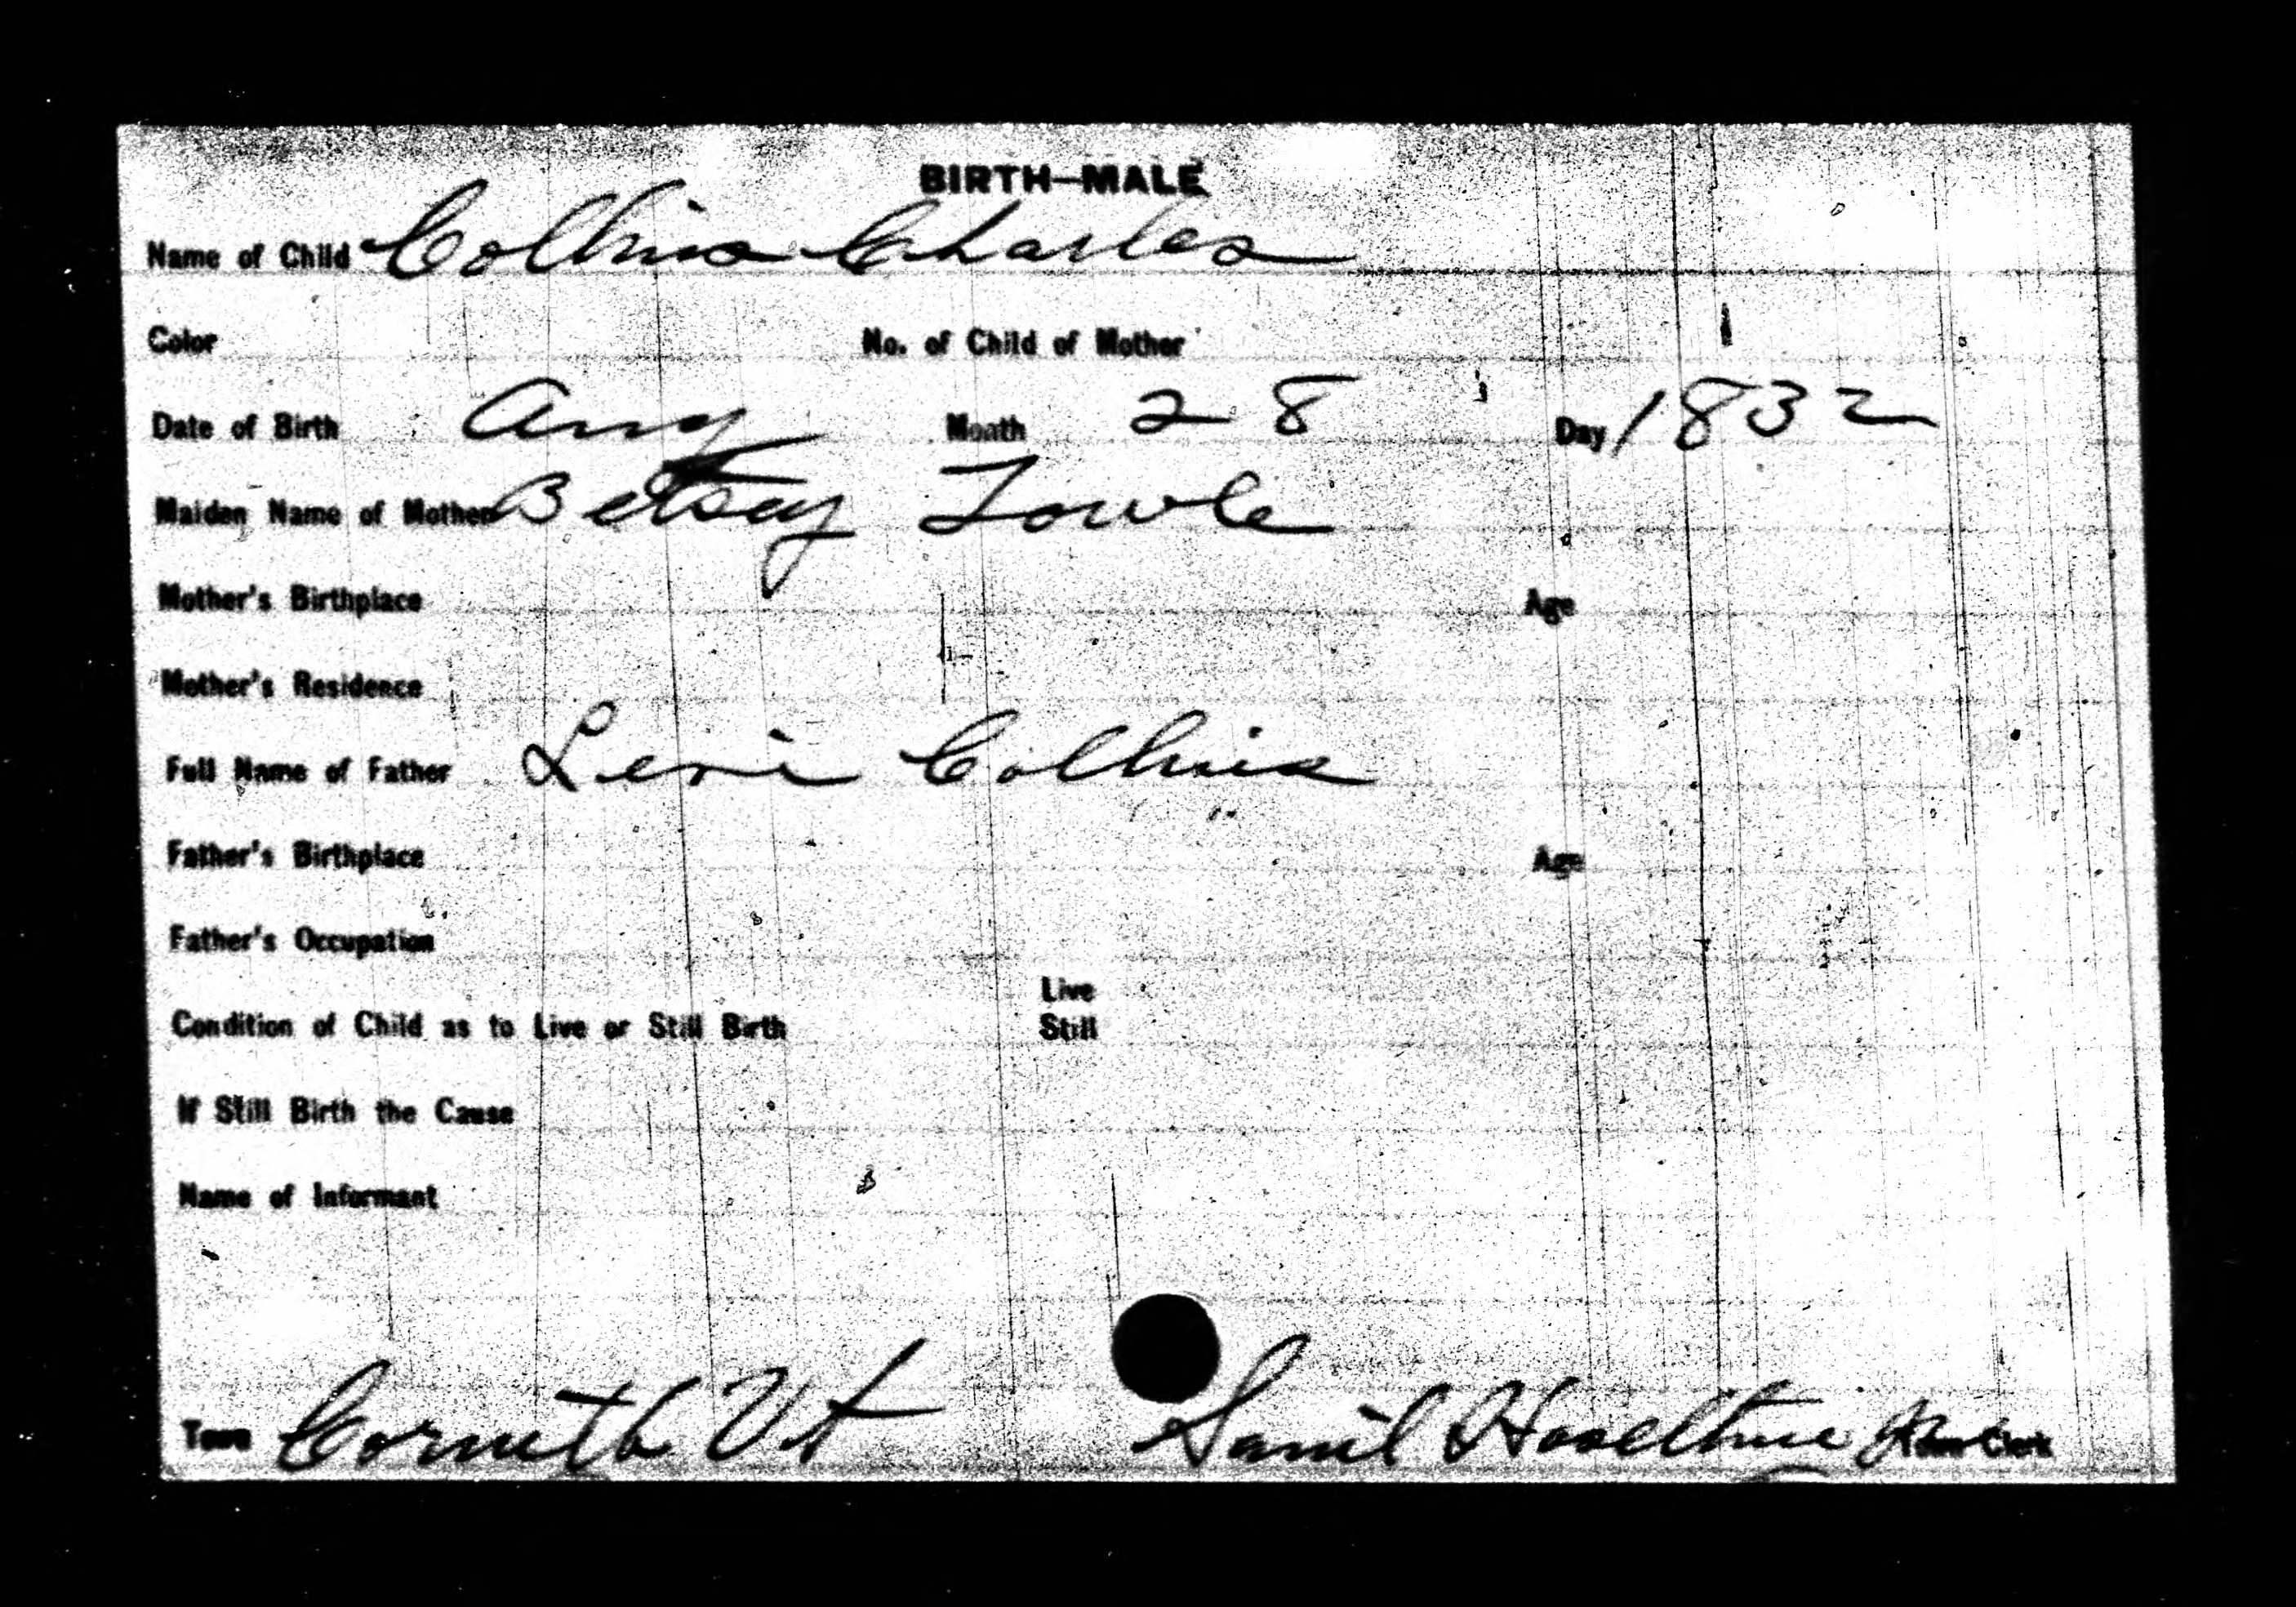 BIRTH—MALE
Name of Child Collins Charles
Color No. of Child of Mother
Date of Birth Aug Month 28 Day 1832
Maiden Name of Mother Betsey Towle
Mother's Birthplace Age
Mother's Residence
Full Name of Father Levi Collins
Father's Birthplace Age
Father's Occupation
Live
Condition of Child as to Live or Still Birth Still
If Still Birth the Cause
Name of Informant
Town Corinth Vt Saml Haseltine Jr Town Clerk